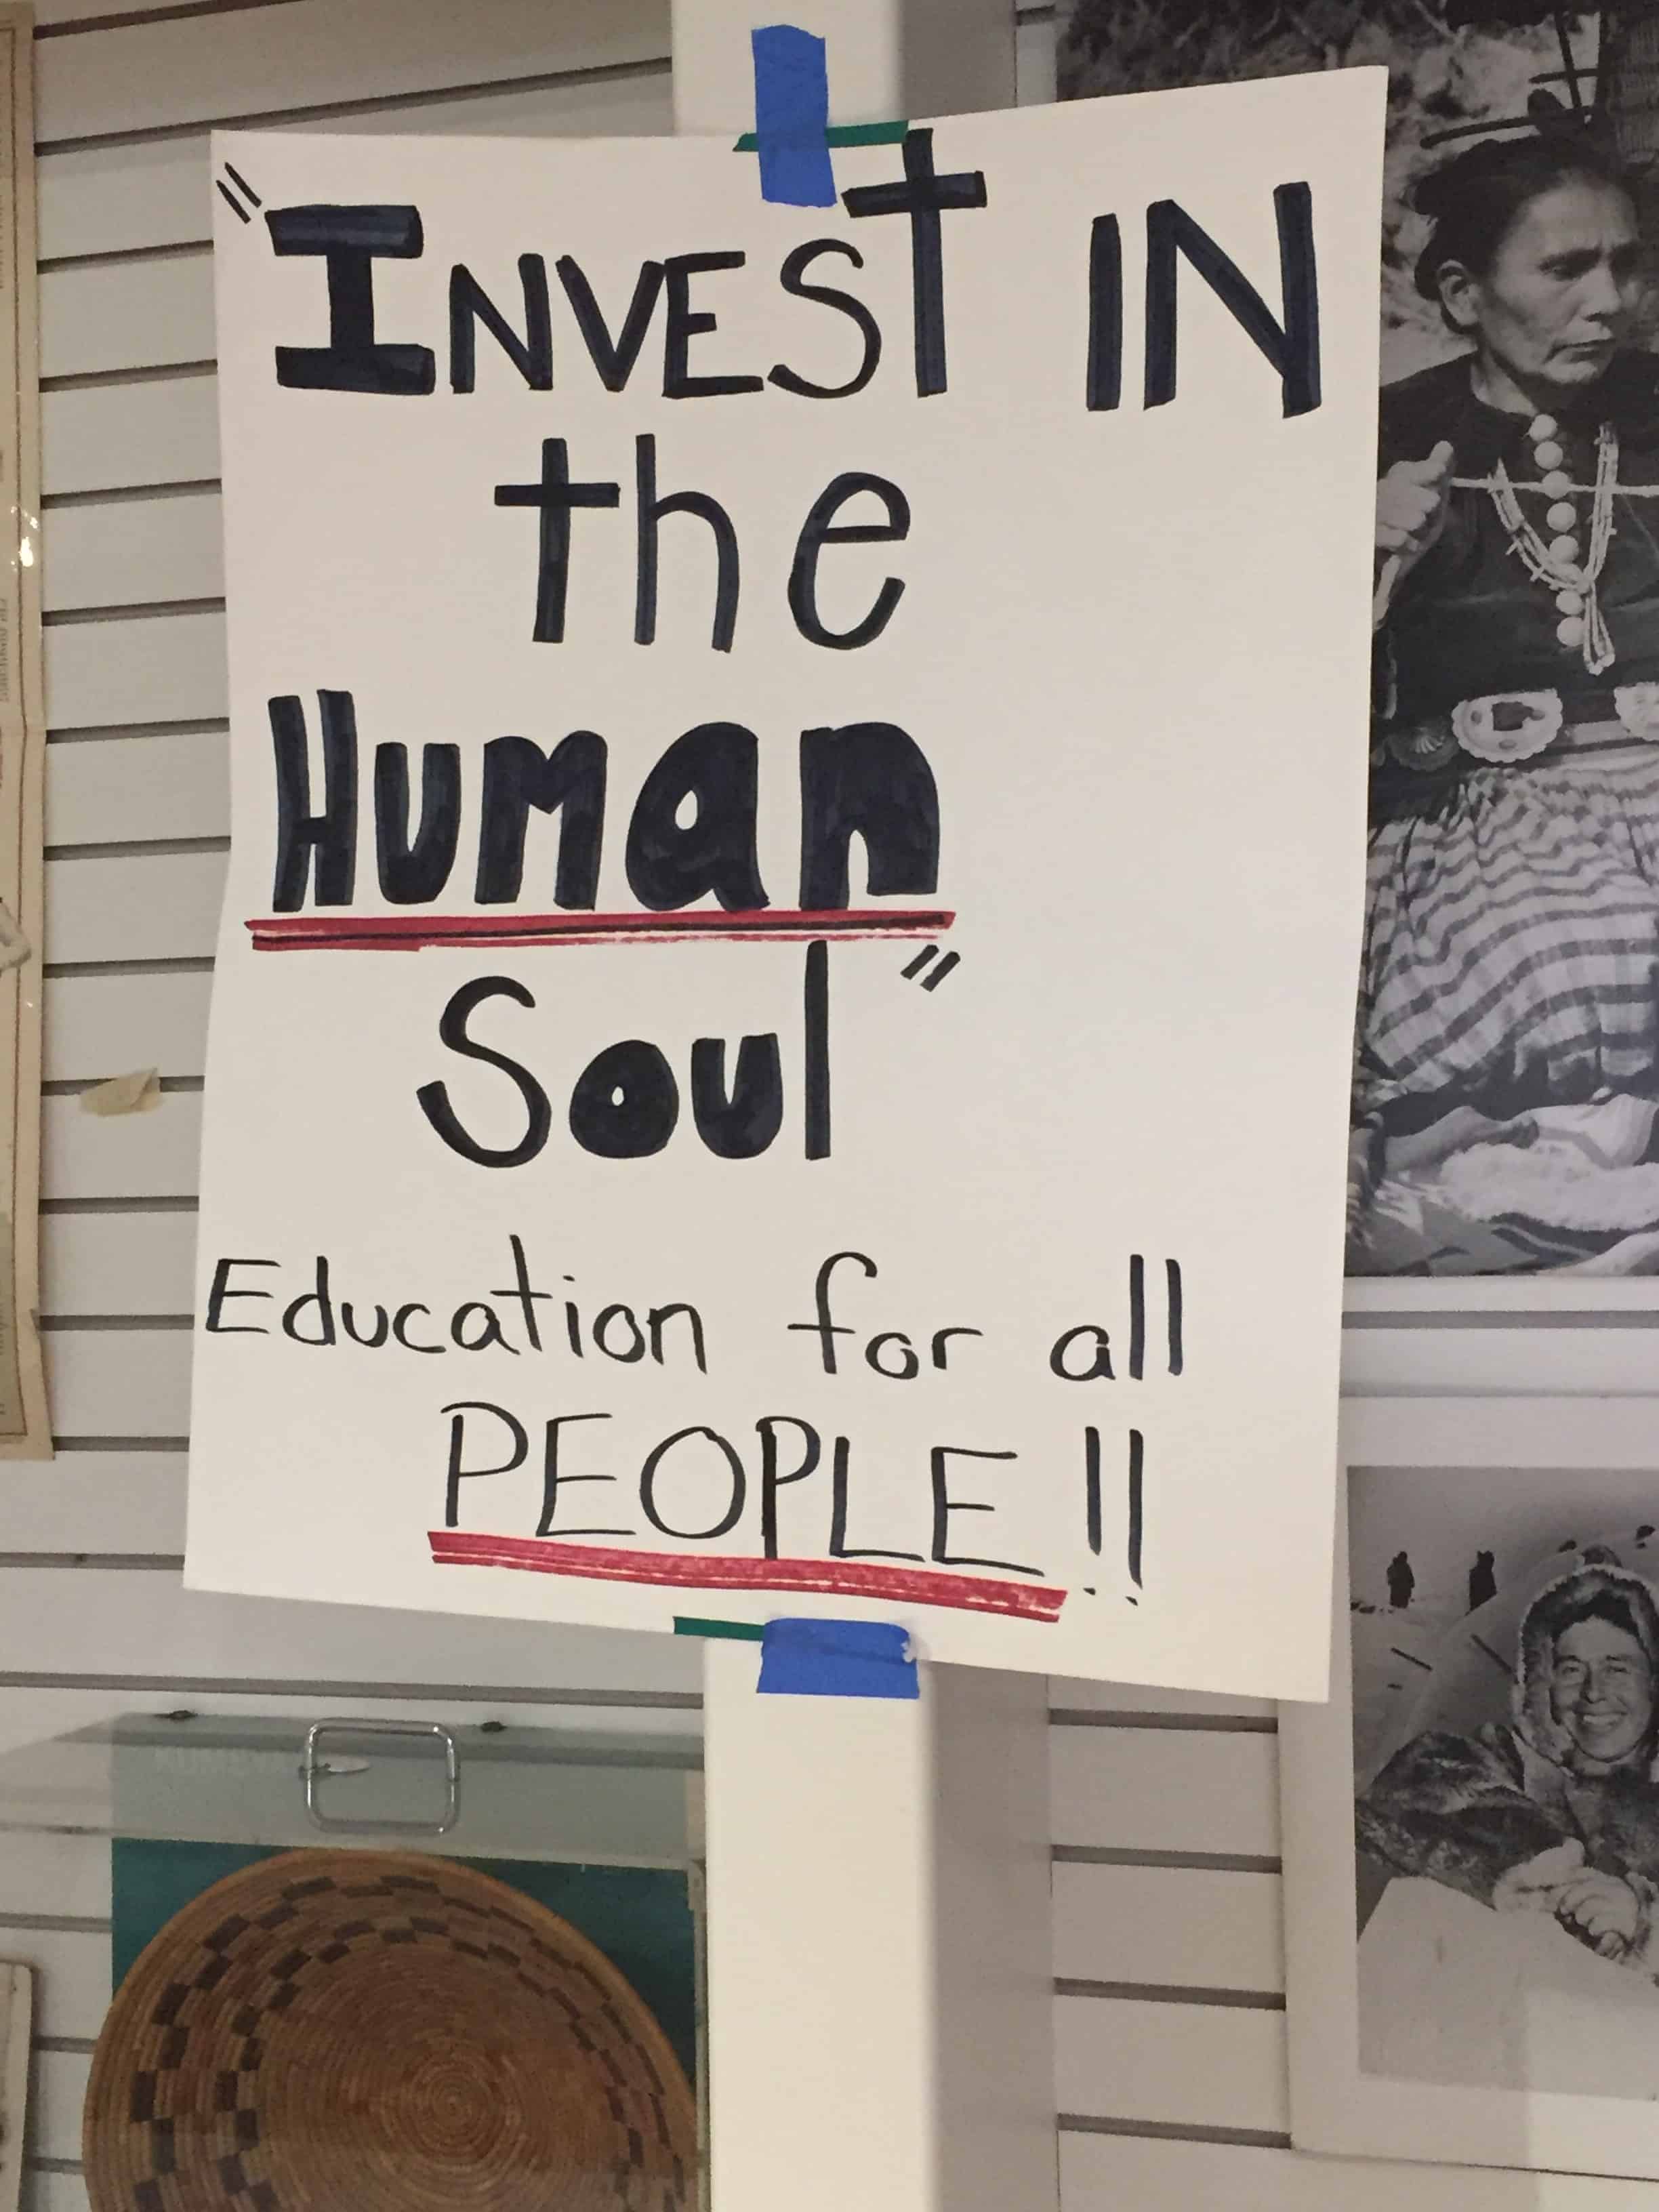 "INVEST IN
the
Human
Soul"
Education for all
PEOPLE!!